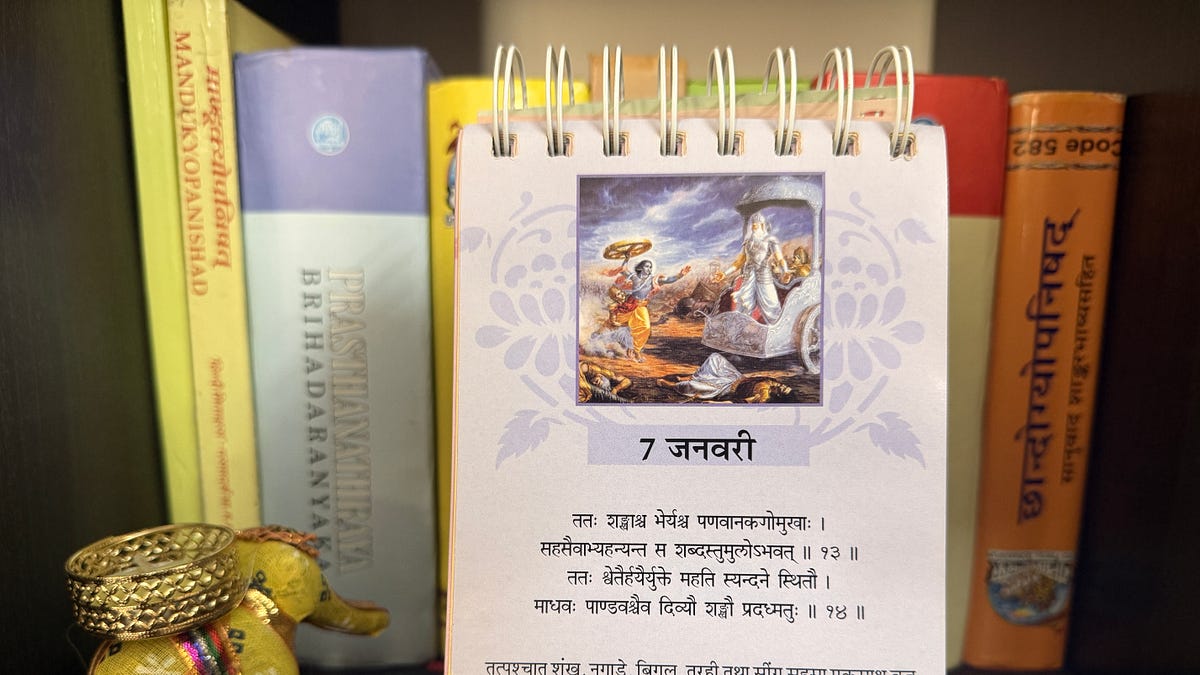 माण्डूक्योपनिषद्
MANDUKYOPANISHAD
PRASTHANATHRAYA
BRIHADARANYAKA
7 जनवरी
ततः शङ्खाश्च भेर्यश्च पणवानकगोमुखाः ।
सहसैवाभ्यहन्यन्त स शब्दस्तुमुलोऽभवत् ॥ १३ ॥
ततः श्वेतैर्हयैर्युक्ते महति स्यन्दने स्थितौ ।
माधवः पाण्डवश्चैव दिव्यौ शङ्खौ प्रदध्मतुः ॥ १४ ॥
तत्पश्चात् शंख, नगाड़े, बिगुल, तुरही तथा सींग सहसा एकसाथ बज
Code 582
छान्दोग्योपनिषद्
सानुवाद शाङ्करभाष्यसहित